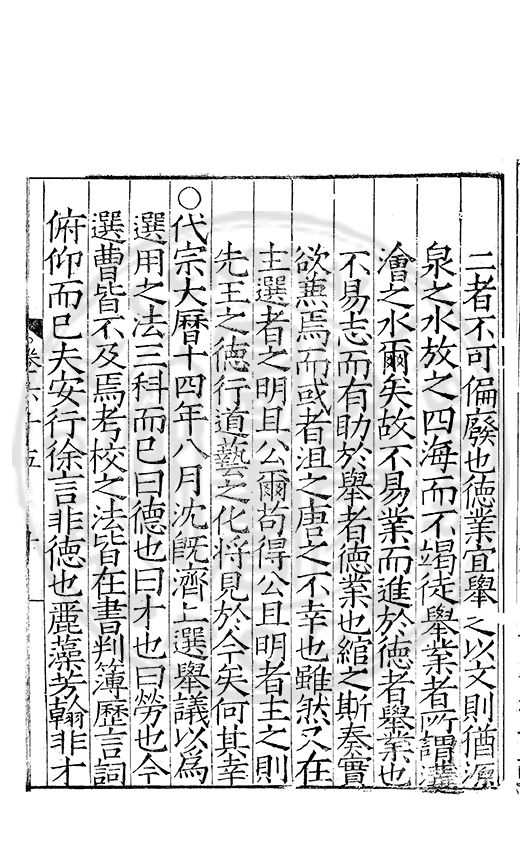 二者不可偏廢也德業宜舉之以文則猶源
泉之水放之四海而不竭徒舉業者所謂溝
澮之水爾矣故不易業而進於德者舉業也
不易志而有助於舉者德業也綰之斯奏實
欲蕙焉而或者沮之唐之不幸也雖然又在
主選者之明且公爾茍得公且明者主之則
先王之德行道藝之化將見於今矣何其幸
〇代宗大曆十四年八月沈旣濟上選舉議以爲
選用之法三科而已曰德也曰才也曰勞也今
選曹皆不及焉考校之法皆在書判簿歷言詞
俯仰而已夫安行徐言非德也麗藻芳翰非才
卷六十五